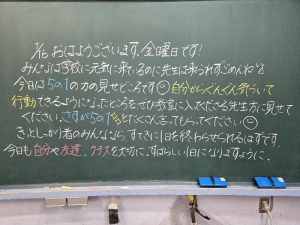 7/10 おはようございます、金曜日です!
みんなは学校に元気に来ているのに先生は来られずごめんね💦
今日は5の1の力の見せどころです☺自分からぐんぐん気づいて
行動できるようになったところをぜひ教室に入ってくださる先生方に見せて
ください。さすが5の1!!とたくさん言ってもらってください☺
きっとしっかり者のみんななら、すてきに1日を終わらせられるはずです。
今日も自分や友達、クラスを大切に、すばらしい1日になりますように.